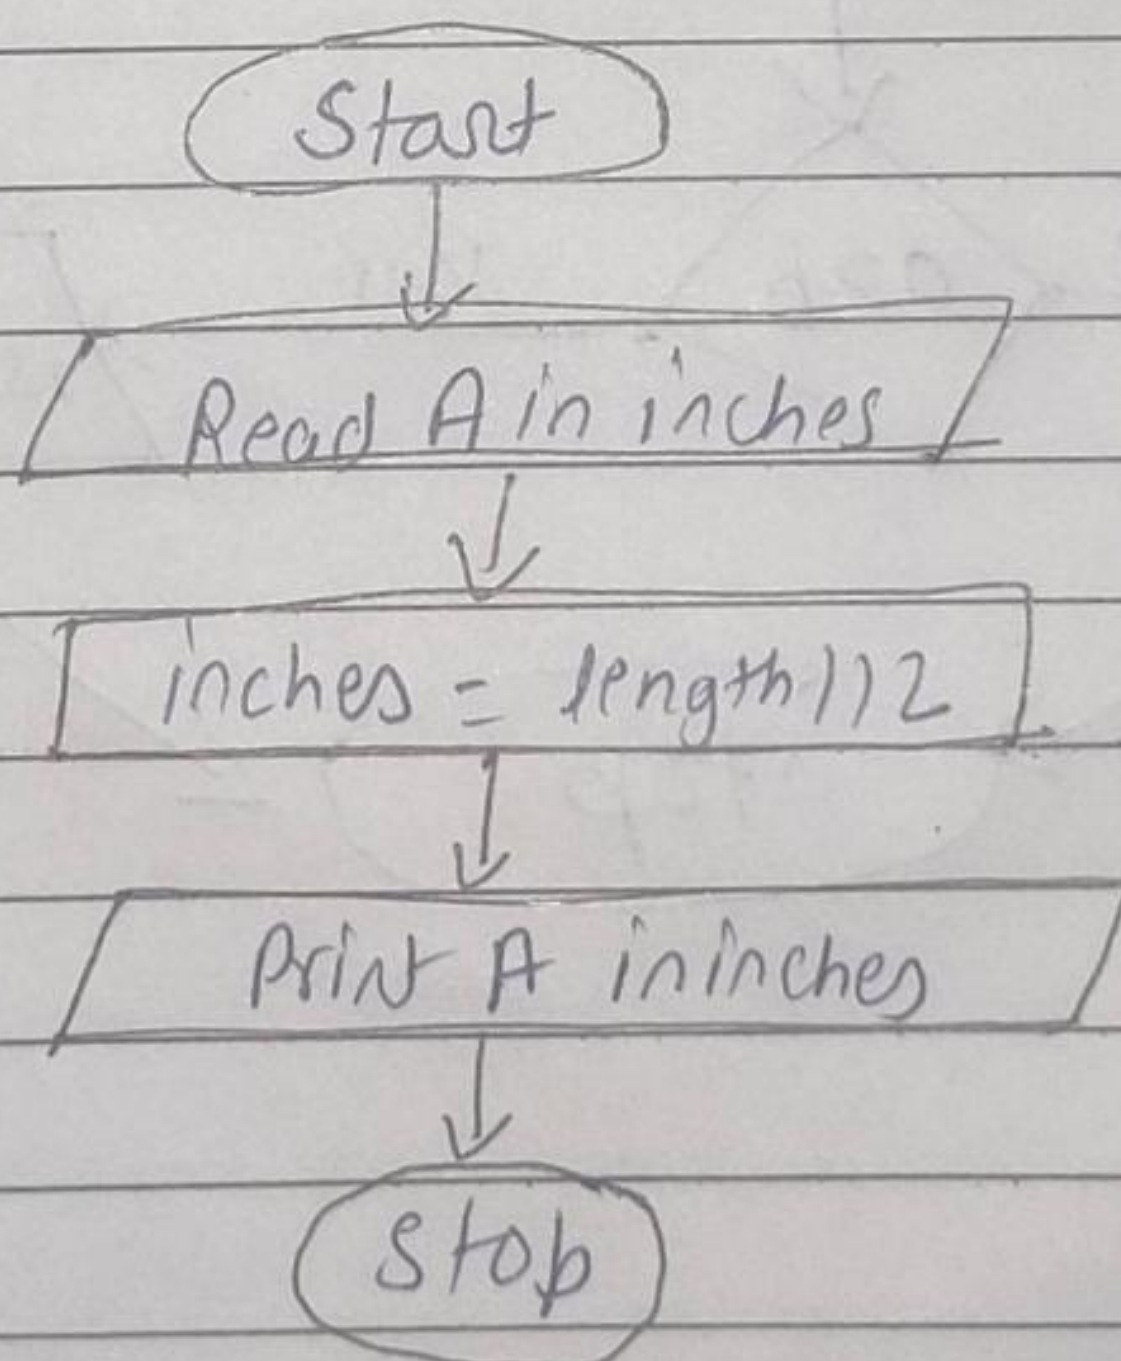 Start
Read A in inches
inches = length/12
Print A in inches
Stop